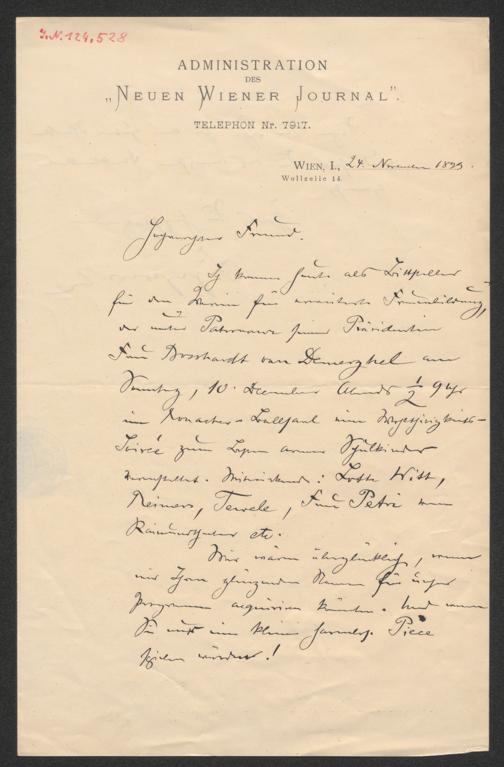 J.N. 124.528
ADMINISTRATION
DES
„NEUEN WIENER JOURNAL".
TELEPHON Nr. 7917.
WIEN, I., 24. November 1899.
Wollzeile 14.
Freund.
Ich komme heute als Bittsteller
für den Verein für erweiterte Frauenbildung,
der unter Patronanz seiner Präsidentin
Frau Bosshardt van Demerghel am
Sonntag, 10. December Abends ½ 9 Uhr
im Ronacher-Ballsaal eine Wohlthätigkeits-
Soirée zum Besten armer Schulkinder
veranstaltet. Mitwirkende: Lotte Witt,
Reimers, Tewele, Frau Petri vom
Raimundtheater etc.
Wir wären überglücklich, wenn
wir Ihren glänzenden Namen für unser
Programm acquiriren könnten. Und wenn
Sie uns eine kleine Piece
würden!